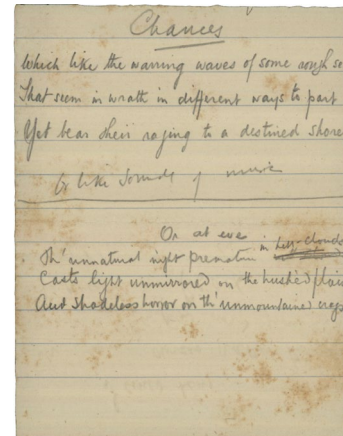 Chances
Which like the warring waves of some rough so
That seem in wrath in different ways to part
Yet bear their raging to a destined shore
Or like sounds of music
Or at eve
Th' unnatural night premature in
Casts light unmirrored on the hushed plai
And shadeless horror on th' unmountained crags